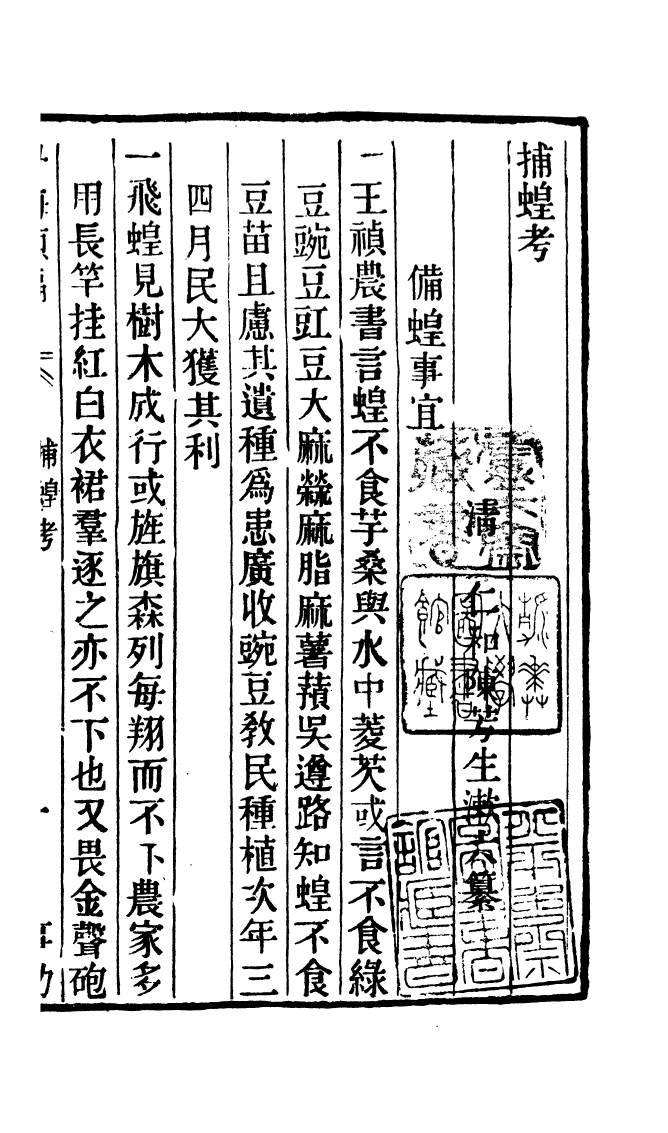 捕蝗考
清　仁和陳芳生漱六纂
備蝗事宜
一王禎農書言蝗不食芋桑與水中菱芡或言不食綠
豆豌豆豇豆大麻䔛麻脂麻薯蕷吳遵路知蝗不食
豆苗且慮其遺種爲患廣收豌豆教民種植次年三
四月民大獲其利
一飛蝗見樹木成行或旌旗森列每翔而不下農家多
用長竿挂紅白衣裙羣逐之亦不下也又畏金聲砲
捕蝗考
一